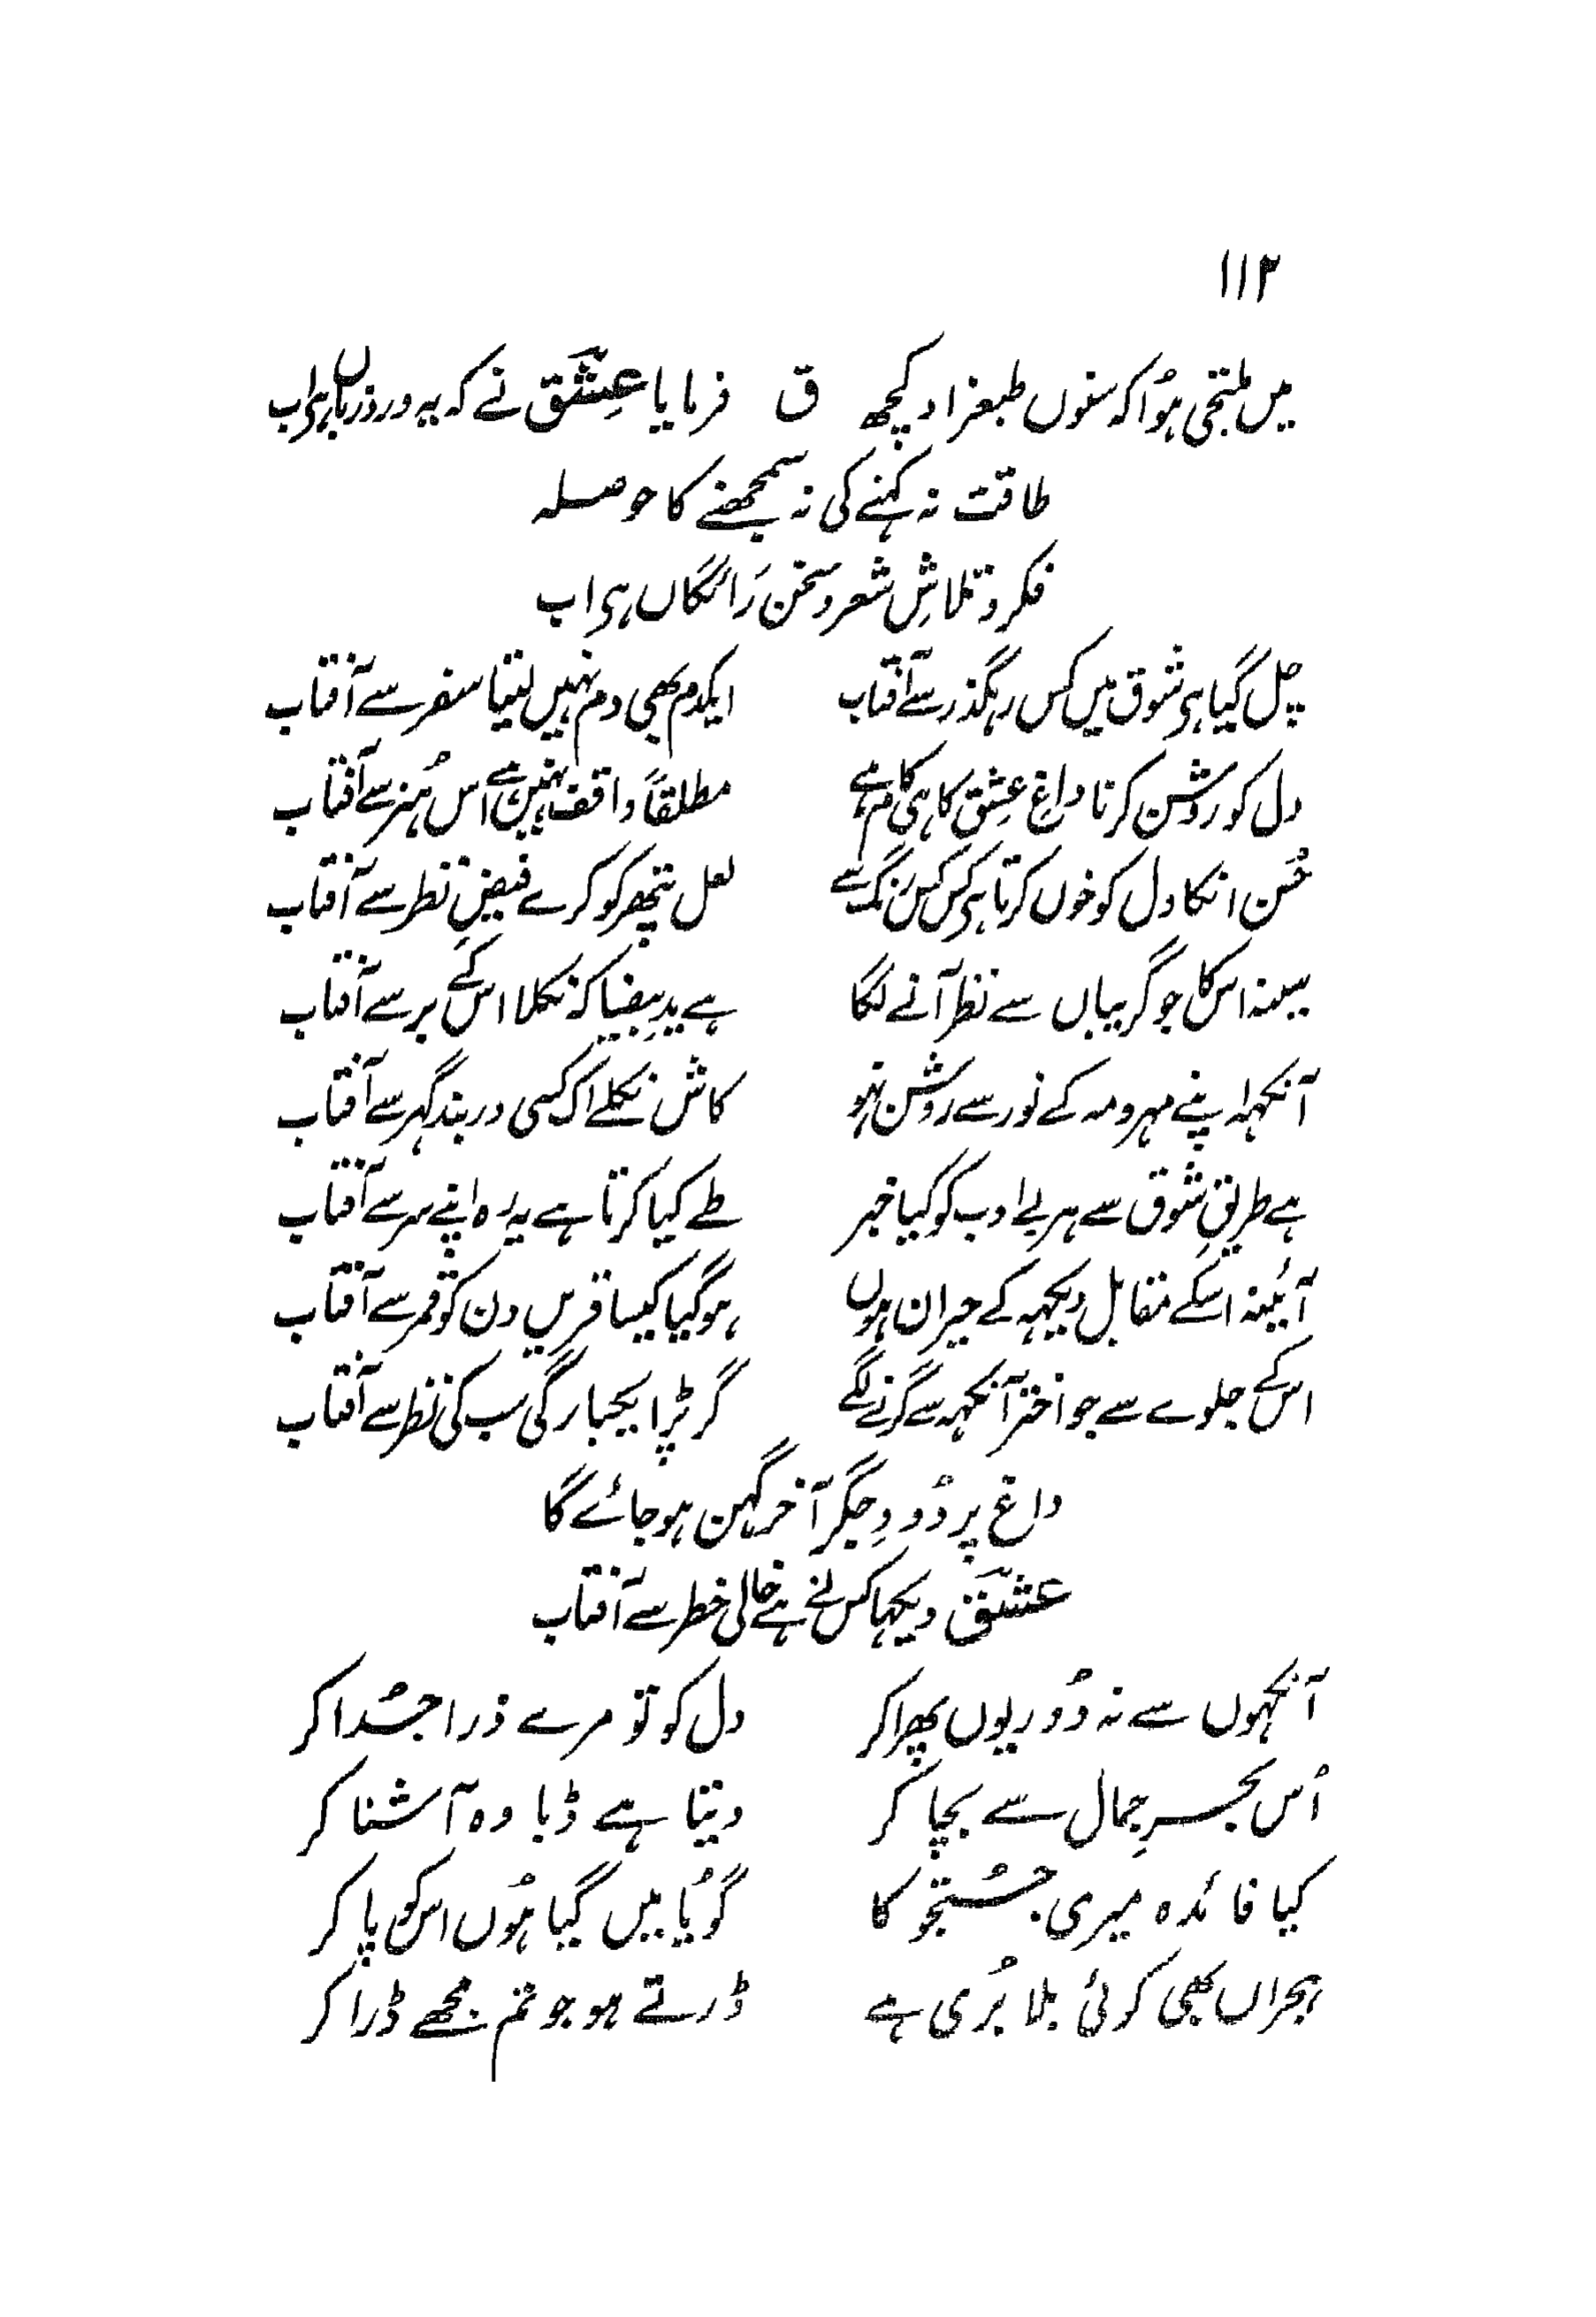 ۱۱۲
میں ملتجی ہُوا کہ سنوں طبعزاد کچھ ق فرمایا عِشق نے کہ یہ وردِ زباں ہی اب
طاقت نہ کہنے کی نہ سمجھنے کا حوصلہ
فکر و تلاشِ شعر و سخن رَائگاں ہی اب
چل گیا ہی شوق میں کس رہگذر سے آفتاب ایکدم بھی دم نہیں لیتا سفر سے آفتاب
دل کو روشن کرنا داغِ عِشق کا ہی کام ہے مطلقاً واقف نہیں ہے اس ہُنر سے آفتاب
حُسن انکا دل کو خوں کرتا ہی کس کس رنگ سے لعل پتھر کو کرے فیضِ نظر سے آفتاب
سینہ اس کا جو گریباں سے نظر آنے لگا ہے یدِ بیضیا کہ نکلا اس کے بر سے آفتاب
آنکھہ اپنے مہرو مہ کے نور سے روشن نہو کاش نکلے اک کسی در بند گہر سے آفتاب
ہے طریقِ شوق سے ہر بے ادب کو کیا خبر طے کیا کرتا ہے یہ رہ اپنے سر سے آفتاب
آئینہ اسکے مقابل دیکھہ کے حیران ہوں ہو گیا کیسا قریں دن کو قمر سے آفتاب
اس کے جلوے سے جو اختر آنکھہ سے گرنے لگے گر پڑا یکبارگی سب کی نظر سے آفتاب
داغ پر دُودِ جگر آخر گہن ہو جائے گا
عشق دیکھا کس نے ہے خالی خطر سے آفتاب
آنکھوں سے نہ دُور یوں پھرا کر دل کو تو مرے ذرا جُدا کر
اُس بحرِ جمال سے بچا کر دیتا ہے ڈبا وہ آشنا کر
کیا فائدہ میری جُستجو کا گویُا میں گیا ہُوں اس کو پا کر
ہجراں بھی کوئی بلا بُری ہے ڈرتے ہو جو تم مجھے ڈرا کر